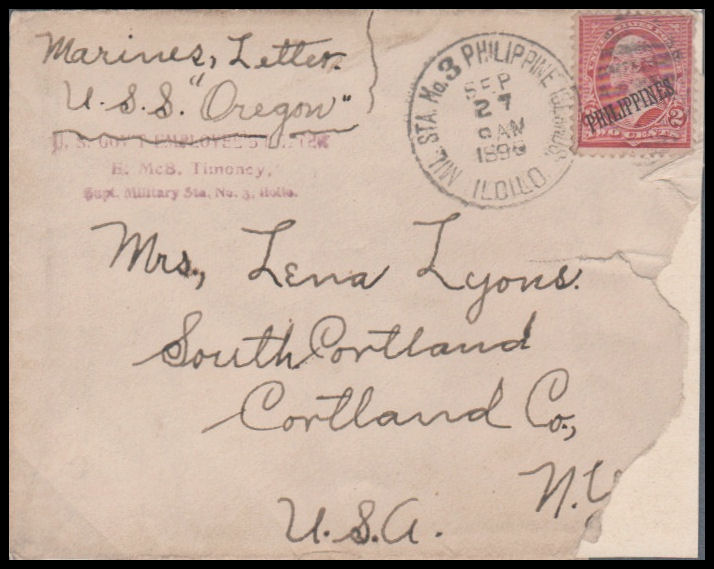 Marines, Letter.
U.S.S. "Oregon"
U. S. GOV'T EMPLOYEE'S LETTER
H. McB. Timoney,
Supt. Military Sta. No. 3, Iloilo.
MIL. STA. No. 3 PHILIPPINE ISLANDS.
SEP
27
8 AM
1899
ILOILO.
PHILIPPINES
2
TWO CENTS
Mrs., Lena Lyons.
South Cortland
Cortland Co.,
N.Y
U.S.A.